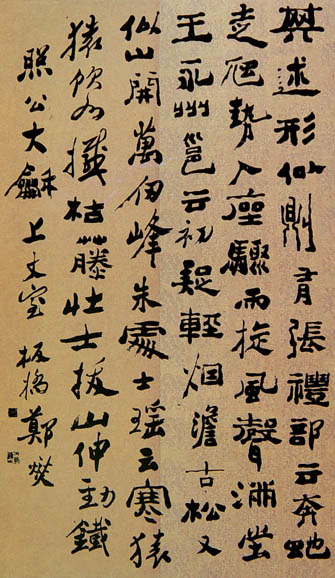 其述形似則有張禮部云奔蛇
走虺勢入座驟雨旋風聲滿堂
王永州邕云初疑輕烟澹古松又
似山開萬仞峰朱處士瑶云寒猿
猿飲水撼枯藤壯士拔山伸勁鐵
照公大龢上丈室 板橋鄭燮